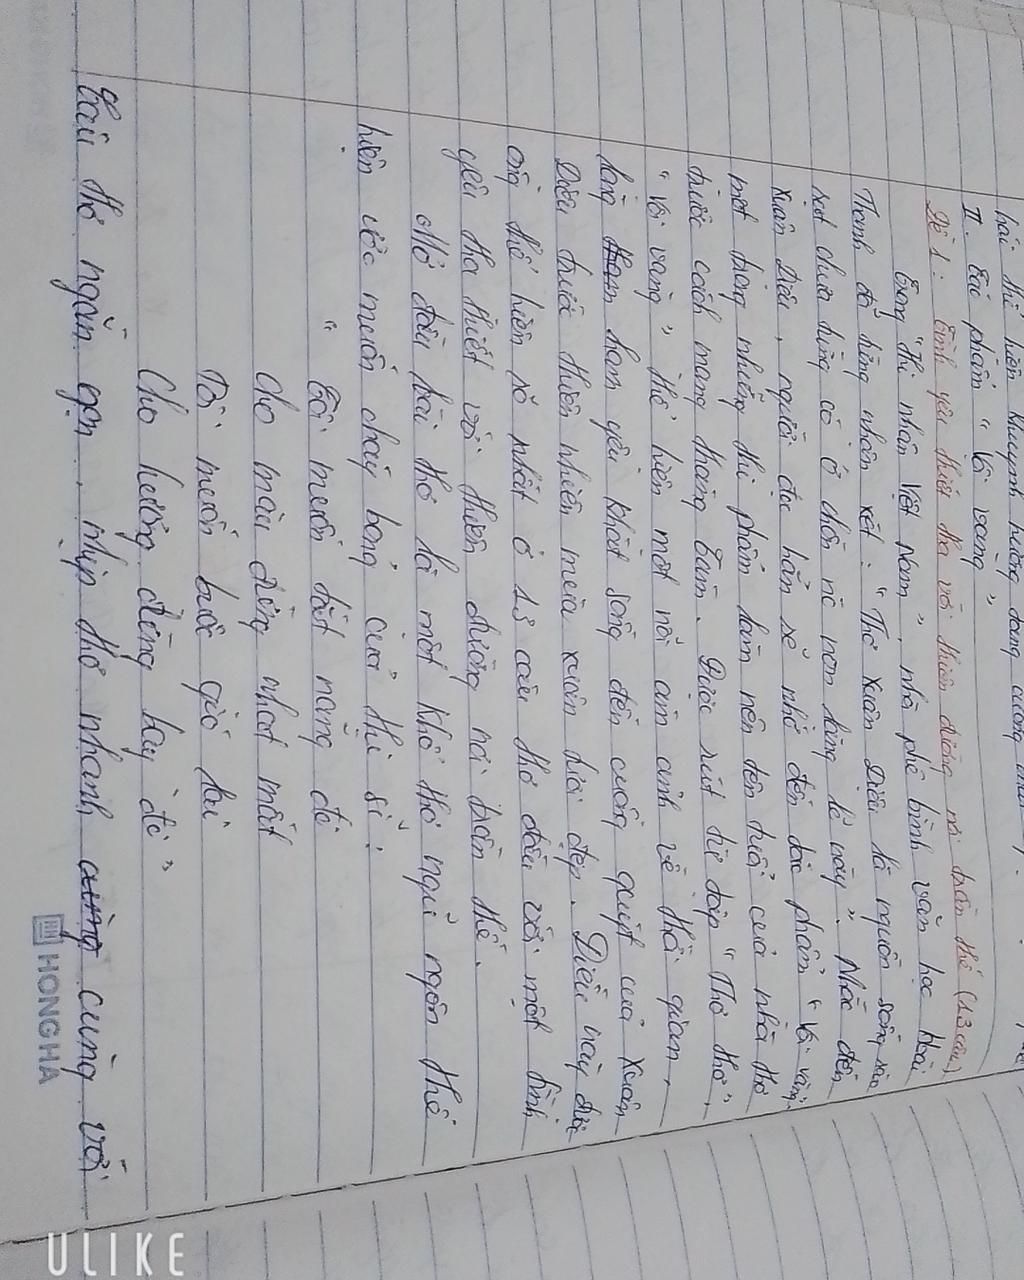 bài thể hiện khuynh hướng
II. Tác phẩm "Vội vàng"
Đề 1: Tình yêu thiết tha với thiên đường nơi trần thế (13 câu)
Trong "Thi nhân Việt Nam", nhà phê bình văn học Hoài
Thanh đã từng nhận xét: "Thơ Xuân Diệu là nguồn sống rào
rạt chưa từng có ở chốn nước non lặng lẽ này". Nhắc đến
Xuân Diệu, người đọc hẳn sẽ nhớ đến tác phẩm "Vội vàng"
một trong những thi phẩm làm nên tên tuổi của nhà thơ
trước cách mạng tháng Tám. Được rút từ tập "Thơ thơ",
"Vội vàng" thể hiện một nỗi ám ảnh về thời gian,
lòng ham yêu khát sống đến cuồng quýt của Xuân
Diệu trước thiên nhiên mùa xuân tươi đẹp. Điều này được
ông thể hiện rõ nhất ở 13 câu thơ đầu với một tình
yêu tha thiết với thiên đường nơi trần thế.
Mở đầu bài thơ là một khổ thơ ngũ ngôn thể
hiện ước muốn cháy bỏng của thi sĩ:
"Tôi muốn tắt nắng đi
Cho màu đừng nhạt mất
Tôi muốn buộc gió lại
Cho hương đừng bay đi"
Câu thơ ngắn gọn, nhịp thơ nhanh cùng với
HONG HA
ULIKE